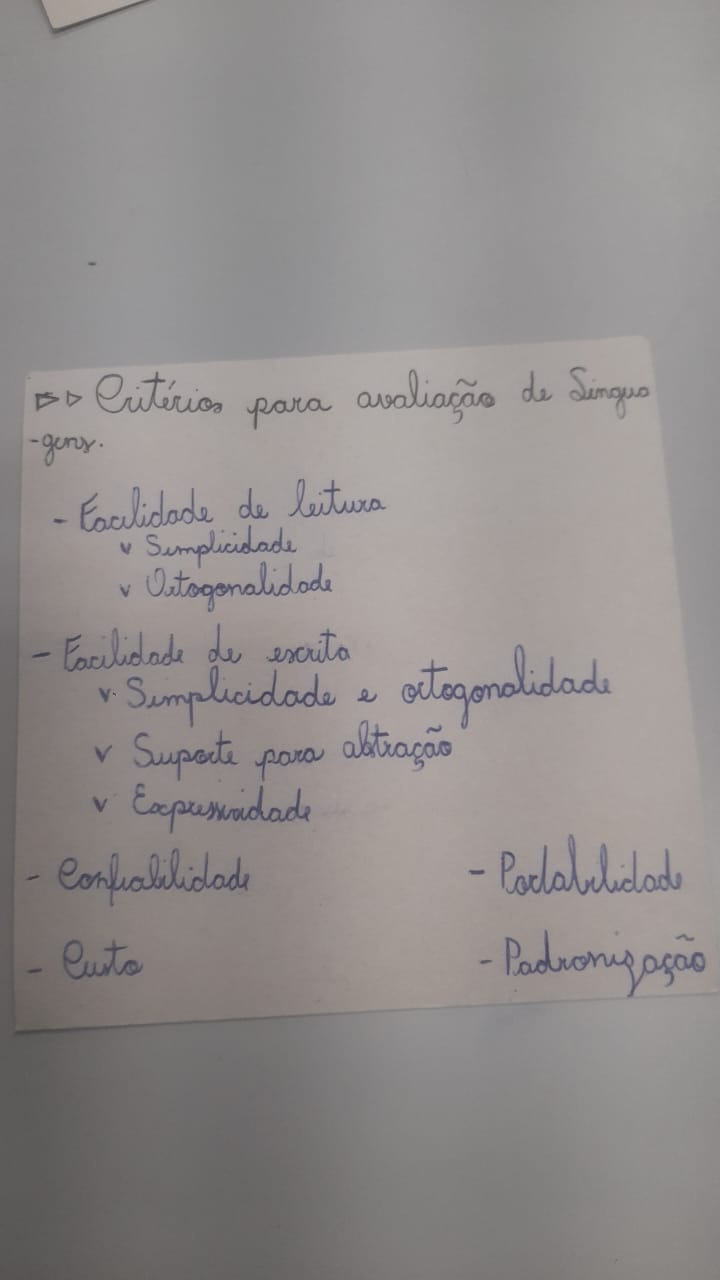 ▷▷ Critérios para avaliação de Lingua
-gens.
- Facilidade de leitura
v Simplicidade
v Ortogonalidade
- Facilidade de escrita
v. Simplicidade e ortogonalidade
v Suporte para abstração
v Expressividade
- Confiabilidade
- Portabilidade
- Custo
- Padronização